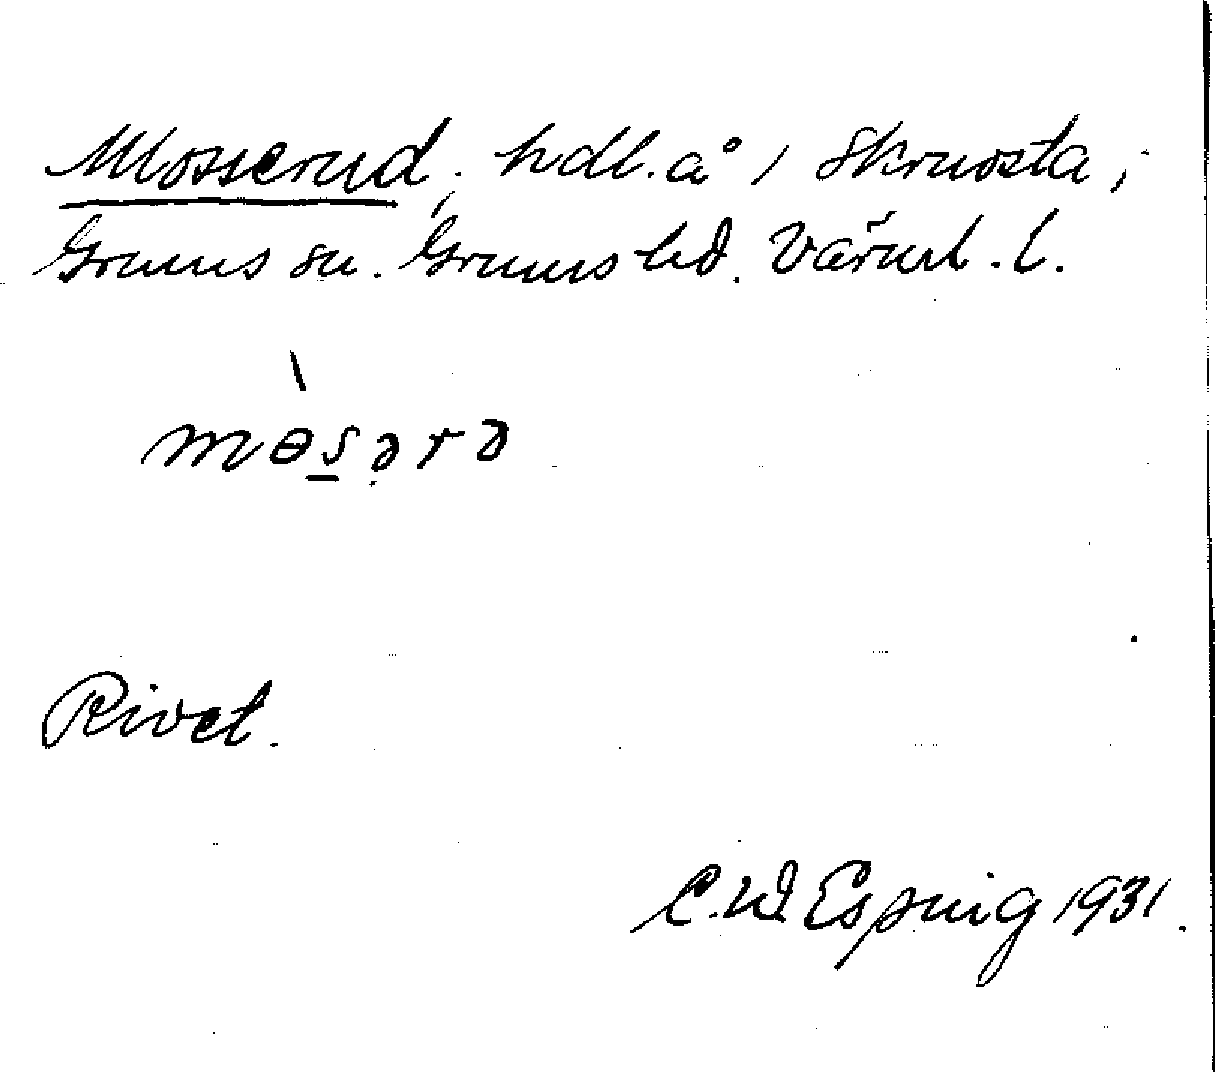 Mosserud, hdl. å 1 Skruvsta,
Grums sn. Grums hd. Värml. l.
mɵ̀s̲ərə
Rivet.
C. W Esping 1931.